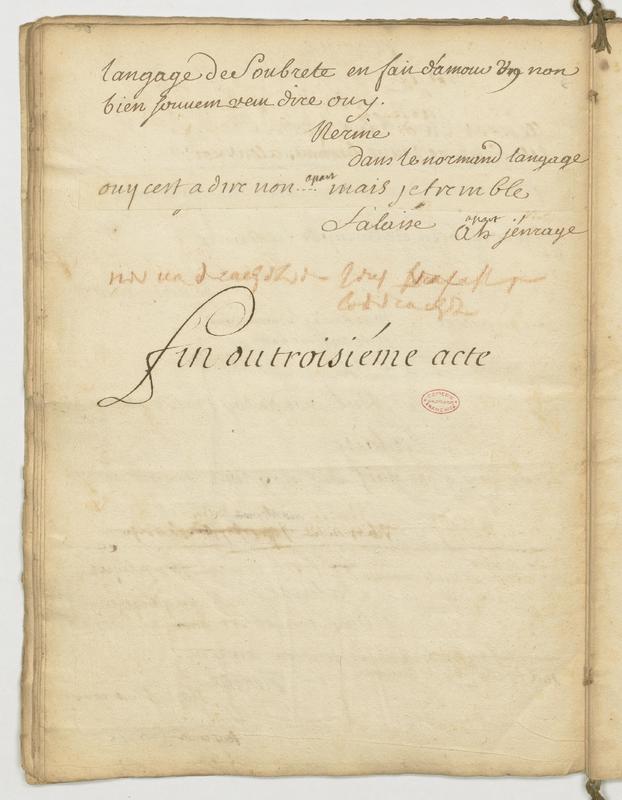 langage de Soubrete en fait d'amour un non
bien souvent veut dire ouy.
Nerine
dans le normand langage
ouy cest a dire non .... apart mais je tremble
Falaise apart Ah j'enrage
fin du troisiéme acte
COMEDIE
FRANÇAISE